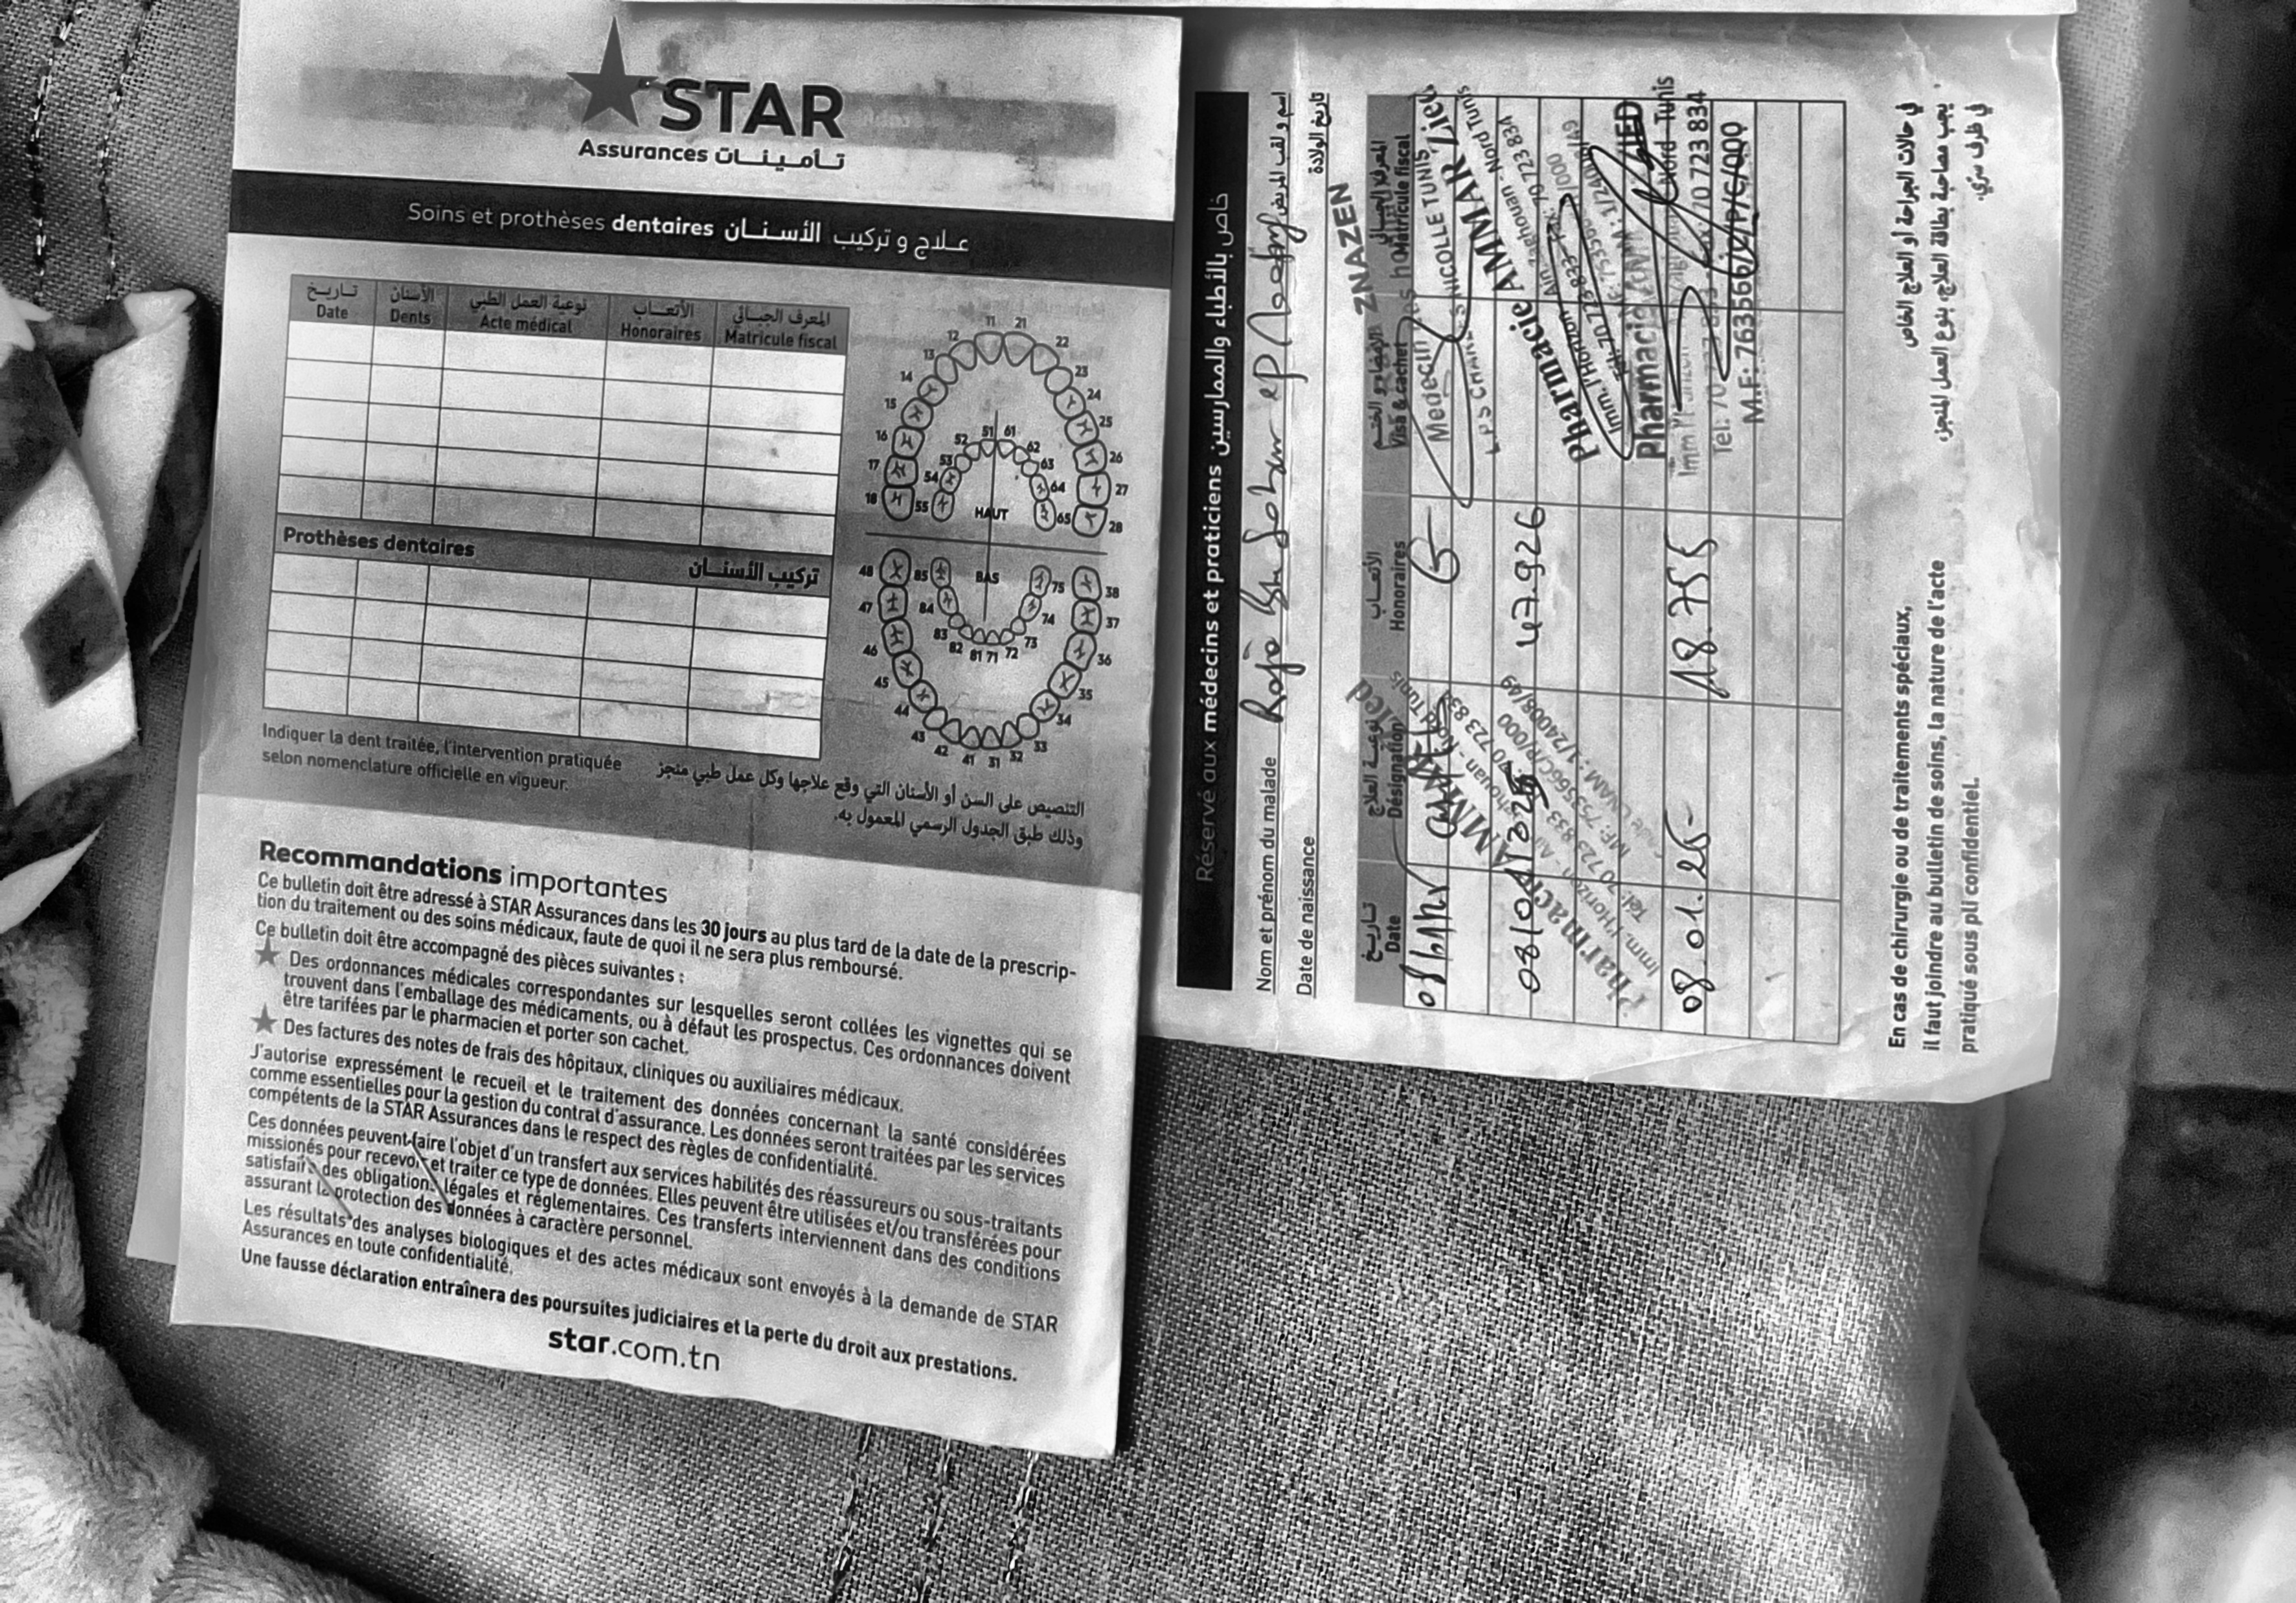 STAR
Assurances تـأمـيـنـات
Soins et prothèses dentaires علاج و تركيب الأسنان
تاريخ الأسنان نوعية العمل الطبي الأتعاب المعرف الجبائي
Date Dents Acte médical Honoraires Matricule fiscal
Prothèses dentaires تركيب الأسنان
11 21
12 22
13 23
14 24
15 25
16 26
17 27
18 28
51 61
52 62
53 63
54 64
55 65
HAUT
BAS
48 85 75 38
47 84 74 37
46 83 73 36
45 82 81 71 72 35
44 34
43 33
42 41 31 32
Indiquer la dent traitée, l'intervention pratiquée
selon nomenclature officielle en vigueur.
التنصيص على السن أو الأسنان التي وقع علاجها وكل عمل طبي منجز
وذلك طبق الجدول الرسمي المعمول به.
Recommandations importantes
Ce bulletin doit être adressé à STAR Assurances dans les 30 jours au plus tard de la date de la prescrip-
tion du traitement ou des soins médicaux, faute de quoi il ne sera plus remboursé.
Ce bulletin doit être accompagné des pièces suivantes :
Des ordonnances médicales correspondantes sur lesquelles seront collées les vignettes qui se
trouvent dans l'emballage des médicaments, ou à défaut les prospectus. Ces ordonnances doivent
être tarifées par le pharmacien et porter son cachet.
Des factures des notes de frais des hôpitaux, cliniques ou auxiliaires médicaux.
J'autorise expressément le recueil et le traitement des données concernant la santé considérées
comme essentielles pour la gestion du contrat d'assurance. Les données seront traitées par les services
compétents de la STAR Assurances dans le respect des règles de confidentialité.
Ces données peuvent faire l'objet d'un transfert aux services habilités des réassureurs ou sous-traitants
missionés pour recevoir et traiter ce type de données. Elles peuvent être utilisées et/ou transférées pour
satisfaire des obligations légales et réglementaires. Ces transferts interviennent dans des conditions
assurant la protection des données à caractère personnel.
Les résultats des analyses biologiques et des actes médicaux sont envoyés à la demande de STAR
Assurances en toute confidentialité.
Une fausse déclaration entraînera des poursuites judiciaires et la perte du droit aux prestations.
star.com.tn
Réservé aux médecins et praticiens خاص بالأطباء والممارسين
Nom et prénom du malade اسم و لقب المريض
Date de naissance تاريخ الولادة
ZNAZEN
تاريخ نوعية العلاج الأتعاب الإمضاء و الختم المعرف الجبائي
Date Désignation Honoraires Visa & cachet Matricule fiscal
Medecin NICOLLE TUNIS
Pharmacie AMMAR
47.926
Pharmacie
08.01.25 18.755
Tél: 70 723 833 70 723 834
M.F: 763566
En cas de chirurgie ou de traitements spéciaux,
il faut joindre au bulletin de soins, la nature de l'acte
pratiqué sous pli confidentiel.
في حالات الجراحة أو العلاج الخاص
يجب مصاحبة بطاقة العلاج بنوع العمل المنجز،
في ظرف سري.